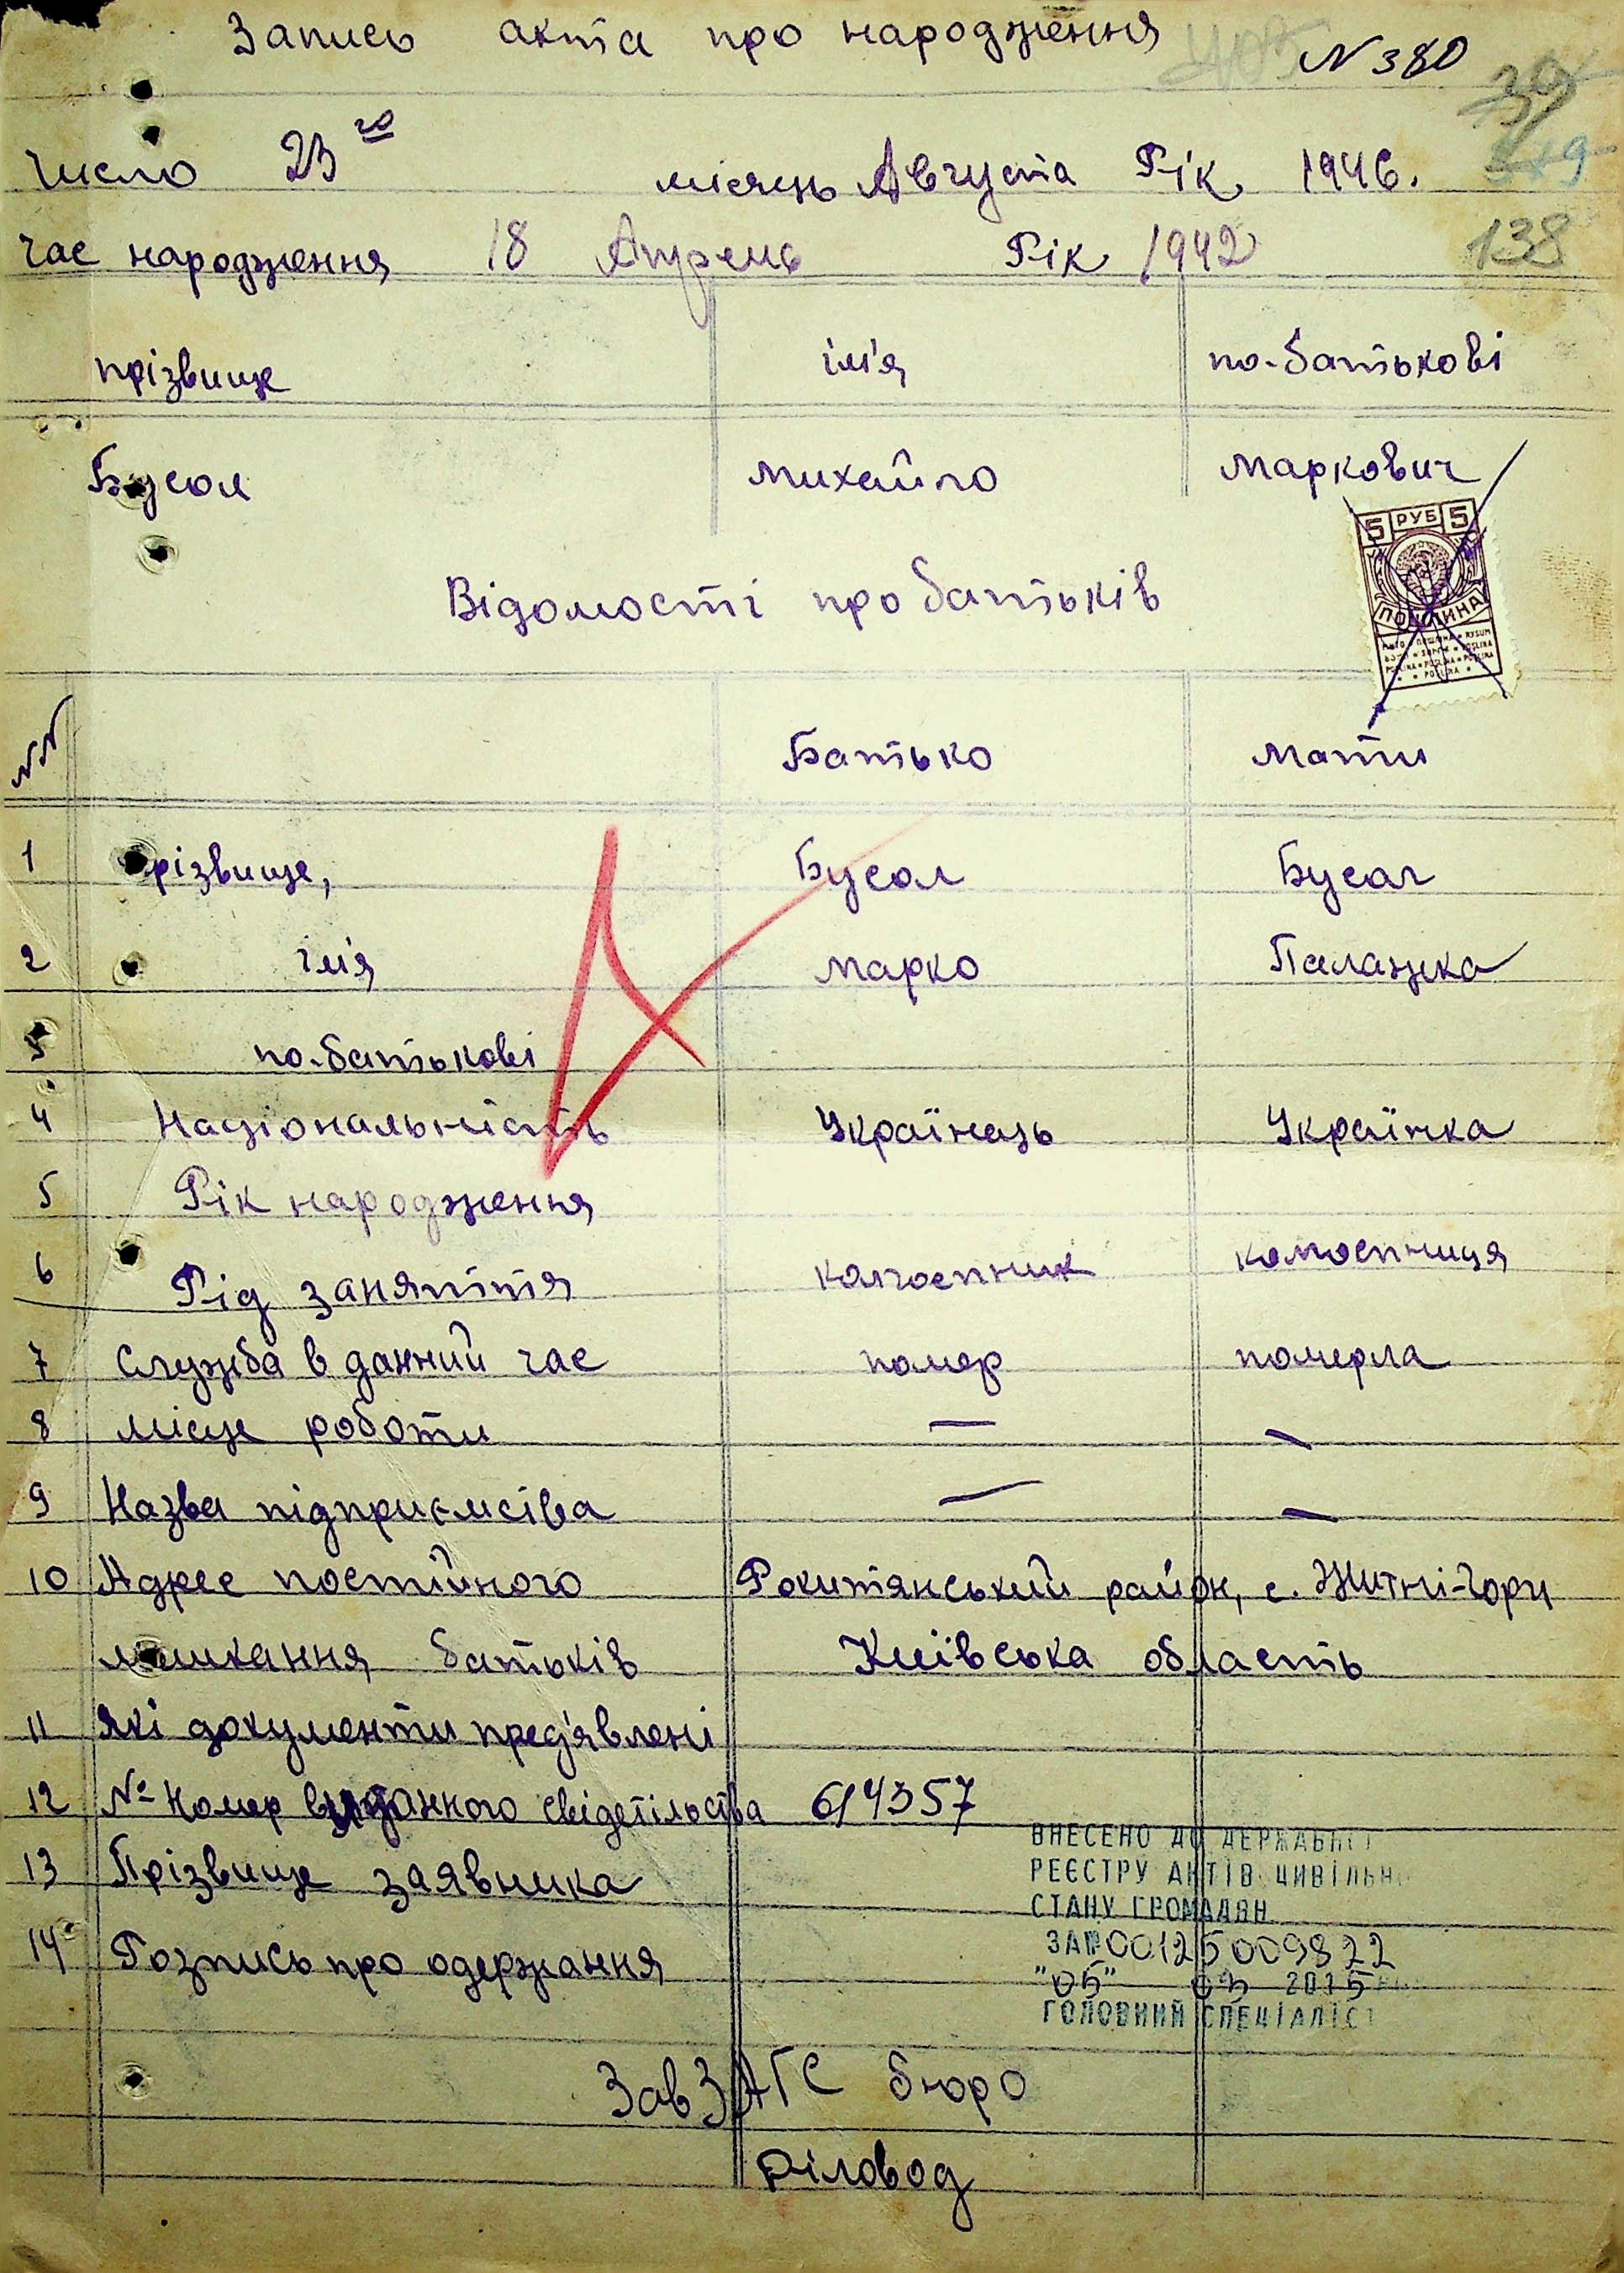 Запись акта про народження
N 380
Число 23го місяць Августа Рік 1946.
Час народження 18 Апрель Рік 1942
138
прізвище ім'я по-батькові
Бусол Михайло Маркович
5 РУБ 5
ПОШЛИНА
Відомості про батьків
NN Батько Мати
1 прізвище, Бусол Бусол
2 ім'я Марко Палажка
3 по-батькові
4 Національність Українець Українка
5 Рік народження
6 Рід заняття колгоспник колгоспниця
7 Служба в данний час помер померла
8 Місце роботи — —
9 Назва підприємства — —
10 Адрес постійного Рокитянський район, с. Житні-Гори
мешкання батьків Київська область
11 Які документи пред'явлені
12 № Номер виданного свідетільства 614357
13 Прізвище заявника
14 Розпись про одержання
ВНЕСЕНО ДО ДЕРЖАВНОГО
РЕЄСТРУ АКТІВ ЦИВІЛЬН
СТАНУ ГРОМАДЯН
ЗА № 00125009822
"05" 03 2015
ГОЛОВНИЙ СПЕЦІАЛІСТ
Зав ЗАГС бюро
Діловод